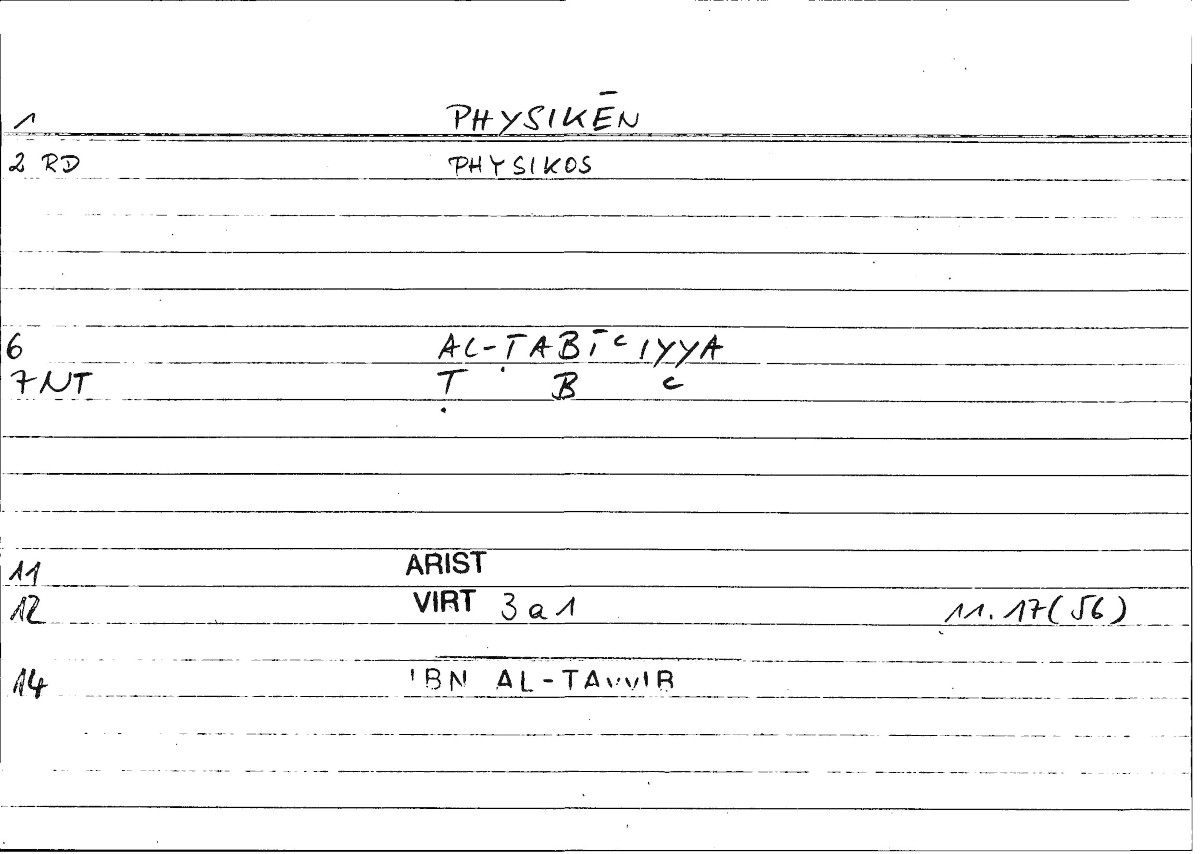 1 PHYSIKĒN
2 RD PHYSIKOS
6 AL-ṬABĪʿIYYA
7 NT Ṭ B ʿ
11 ARIST
12 VIRT 3 a 1 11. 17 (56)
14 IBN AL-TAYYIB